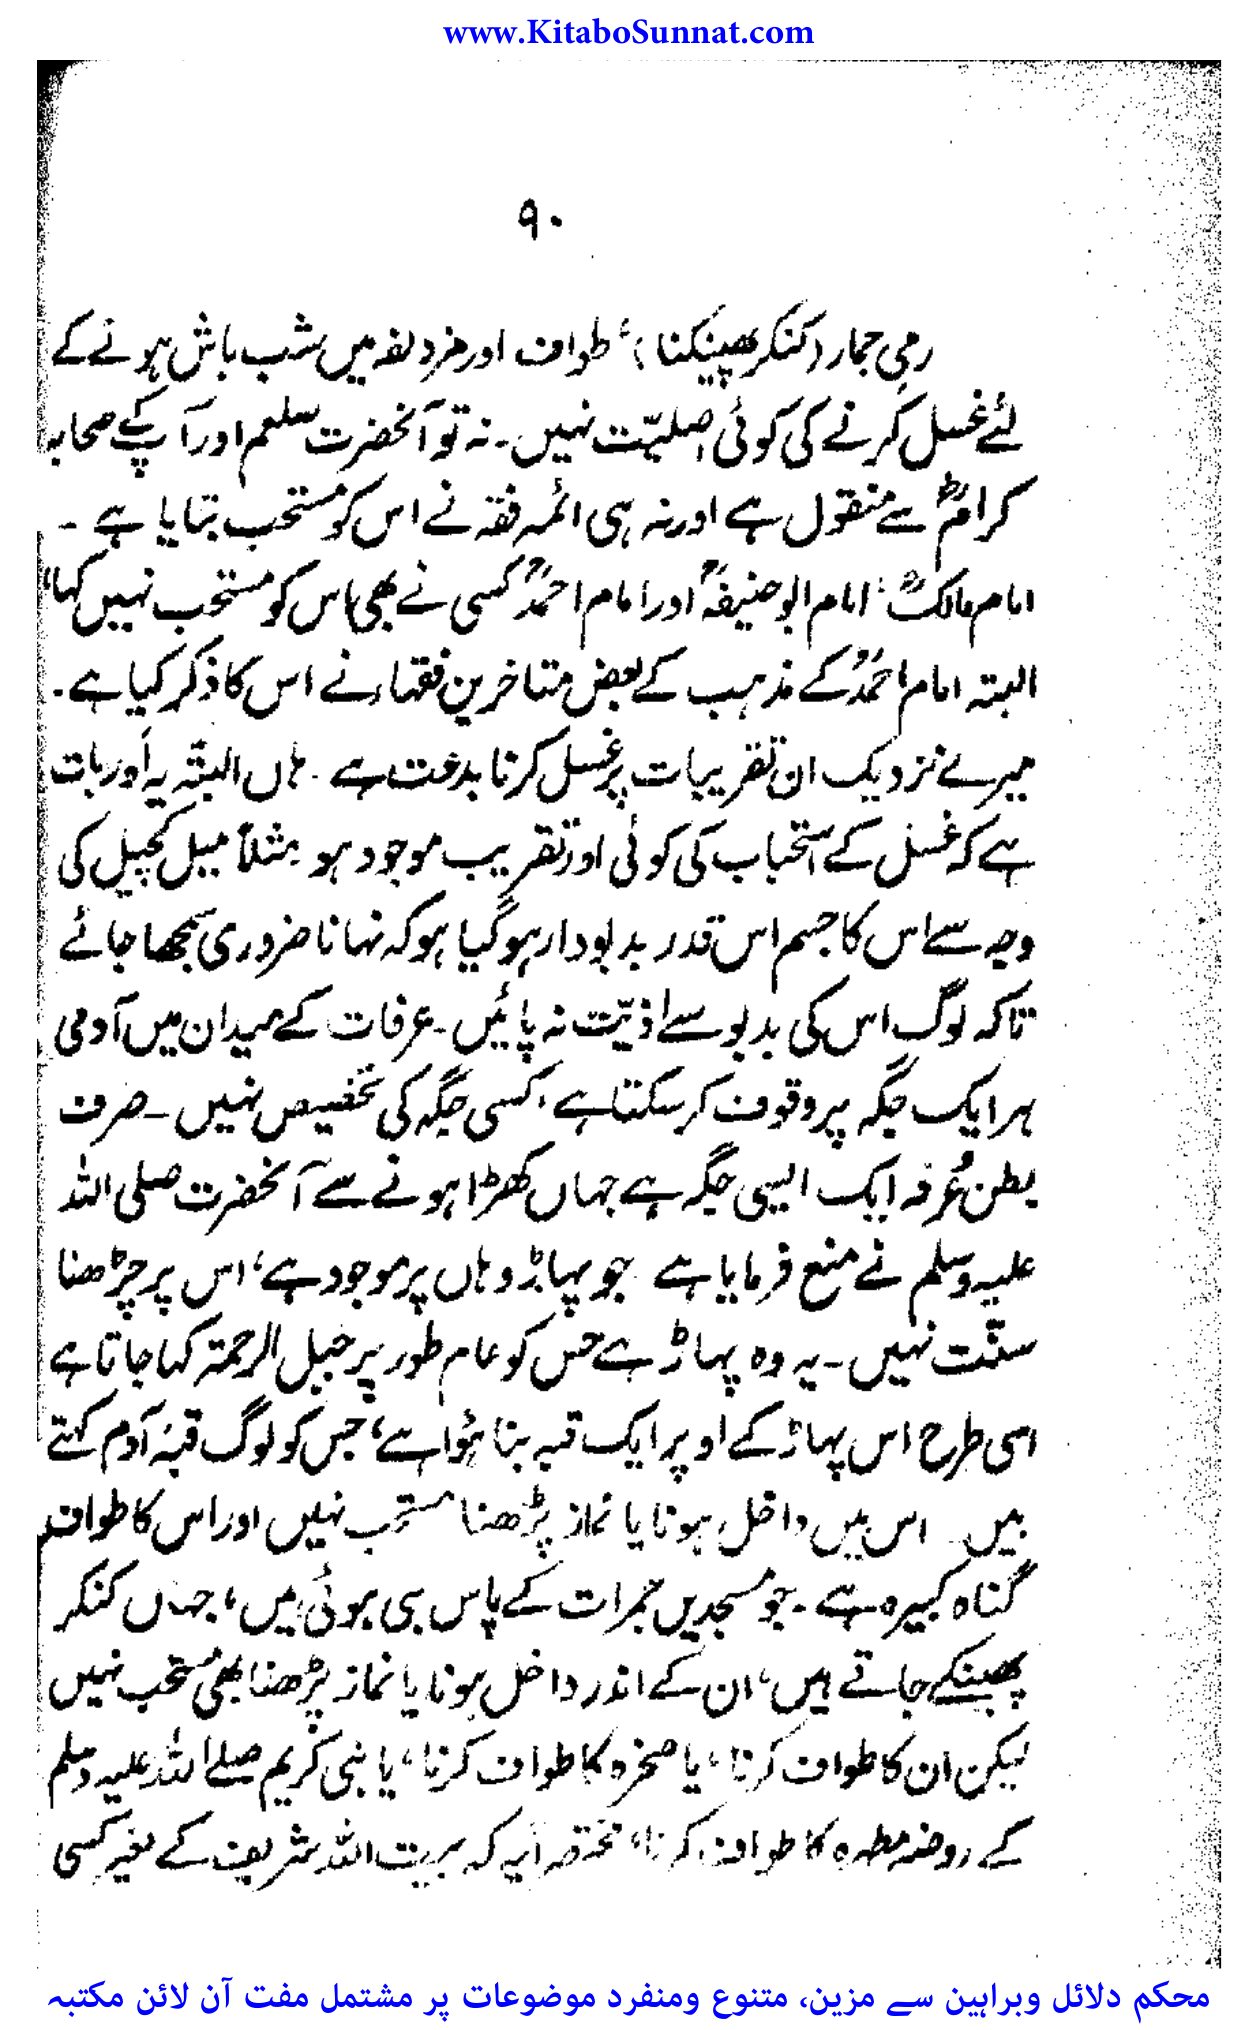 www.KitaboSunnat.com
۹۰
رمیِ جمار (کنکر پھینکنا)، طواف اور مزدلفہ میں شب باش ہونے کے
لئے غسل کرنے کی کوئی اصلیّت نہیں۔ نہ تو آنحضرت صلعم اور آپ کے صحابہ
کرامؓ سے منقول ہے اور نہ ہی ائمہ فقہ نے اس کو مستحب بتایا ہے ۔
امام مالکؒ، امام ابو حنیفہؒ اور امام احمدؒ کسی نے بھی اس کو مستحب نہیں کہا،
البتہ امام احمدؒ کے مذہب کے بعض متاخرین فقہاء نے اس کا ذکر کیا ہے۔
میرے نزدیک ان تقریبات پر غسل کرنا بدعت ہے ۔ ہاں البتّہ یہ اَور بات
ہے کہ غسل کے استحباب کی کوئی اور تقریب موجود ہو مثلاً میل کچیل کی
وجہ سے اس کا جسم اس قدر بدبودار ہو گیا ہو کہ نہانا ضروری سمجھا جائے
تاکہ لوگ اس کی بدبو سے اذیّت نہ پائیں۔ عرفات کے میدان میں آدمی
ہر ایک جگہ پر وقوف کر سکتا ہے، کسی جگہ کی تخصیص نہیں ۔ صرف
بطن عُرفہ ایک ایسی جگہ ہے جہاں کھڑا ہونے سے آنحضرت صلی اللہ
علیہ وسلم نے منع فرمایا ہے جو پہاڑ وہاں پر موجود ہے، اس پر چڑھنا
سنّت نہیں ۔ یہ وہ پہاڑ ہے جس کو عام طور پر جبل الرحمۃ کہا جاتا ہے
اسی طرح اس پہاڑ کے اوپر ایک قبہ بنا ہُوا ہے، جس کو لوگ قبۂ آدم کہتے
ہیں۔ اس میں داخل ہونا یا نماز پڑھنا مستحب نہیں اور اس کا طواف
گناہ کبیرہ ہے ۔ جو مسجدیں جمرات کے پاس بنی ہوئی ہیں، جہاں کنکر
پھینکے جاتے ہیں، ان کے اندر داخل ہونا یا نماز پڑھنا بھی مستحب نہیں
لیکن ان کا طواف کرنا، یا صخرہ کا طواف کرنا، یا نبی کریم صلے اللہ علیہ وسلم
کے روضہ مطہرہ کا طواف کرنا، مختصراً یہ کہ بیت اللہ شریف کے بغیر کسی
محکم دلائل وبراہین سے مزین، متنوع ومنفرد موضوعات پر مشتمل مفت آن لائن مکتبہ